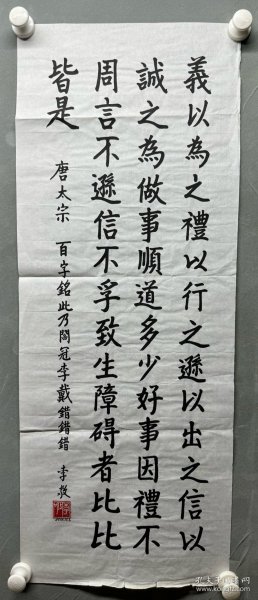 義以為之禮以行之遜以出之信以
誠之為做事順道多少好事因禮不
周言不遜信不孚致生障碍者比比
皆是
唐太宗 百字銘此乃閻冠李戴錯錯錯 李敖
孔夫子旧书网